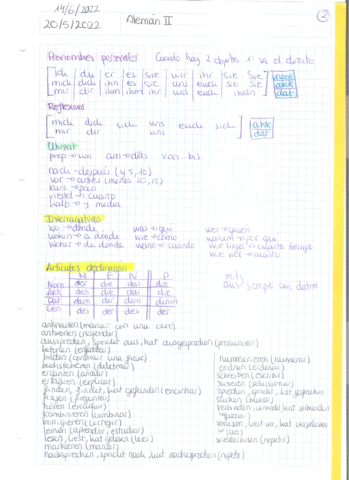 14/6/2022
20/5/2022
Alemán II
2
Pronombres personales Cuando hay 2 objetos 1º va el directo
Ich du er es sie wir ihr sie Sie nom
mich dich ihn es sie uns euch sie Sie akk
mir dir ihm ihm ihr uns euch ihnen dat
Reflexivos
mich dich sich uns euch sich akk
mir dir uns dat
Uhrzeit
prep → um am → días von - bis
nach → después (y 5, 10)
vor → antes (menos 10, 15)
kurz → poco
viertel → cuarto
halb → y media
Interrogativos
wo → dónde was → que wer → quien
wohin → a donde wie → cómo warum → por que
woher → de donde wann → cuando wie lange → cuanto tiempo
wie viel → cuanto
Artículos declinaren
M F N P
Nom der die das die
Akk den die das die
Dat dem der dem denen
Gen des der des der
mit
aus siempre con dativo
ankreuzen (marcar con una cruz)
antworten (responder)
aussprechen, spricht aus, hat ausgesprochen (pronunciar)
betonen (enfatizar)
bilden (construir una frase)
buchstabieren (deletrear)
ergänzen (añadir)
erklären (explicar)
finden, findet, hat gefunden (encontrar)
fragen (preguntar)
hören (escuchar)
kombinieren (combinar)
korrigieren (corregir)
lernen (aprender, estudiar)
lesen, liest, hat gelesen (leer)
markieren (marcar)
nachsprechen, spricht nach, hat nachgesprochen (repetir)
nummerieren (numerar)
ordnen (ordenar)
schreiben (escribir)
sortieren (seleccionar)
sprechen, spricht, hat gesprochen
suchen (buscar)
verbinden, verbindet, hat verbunden
vorlesen, liest vor, hat vorgelesen
(leer)
wiederholen (repetir)